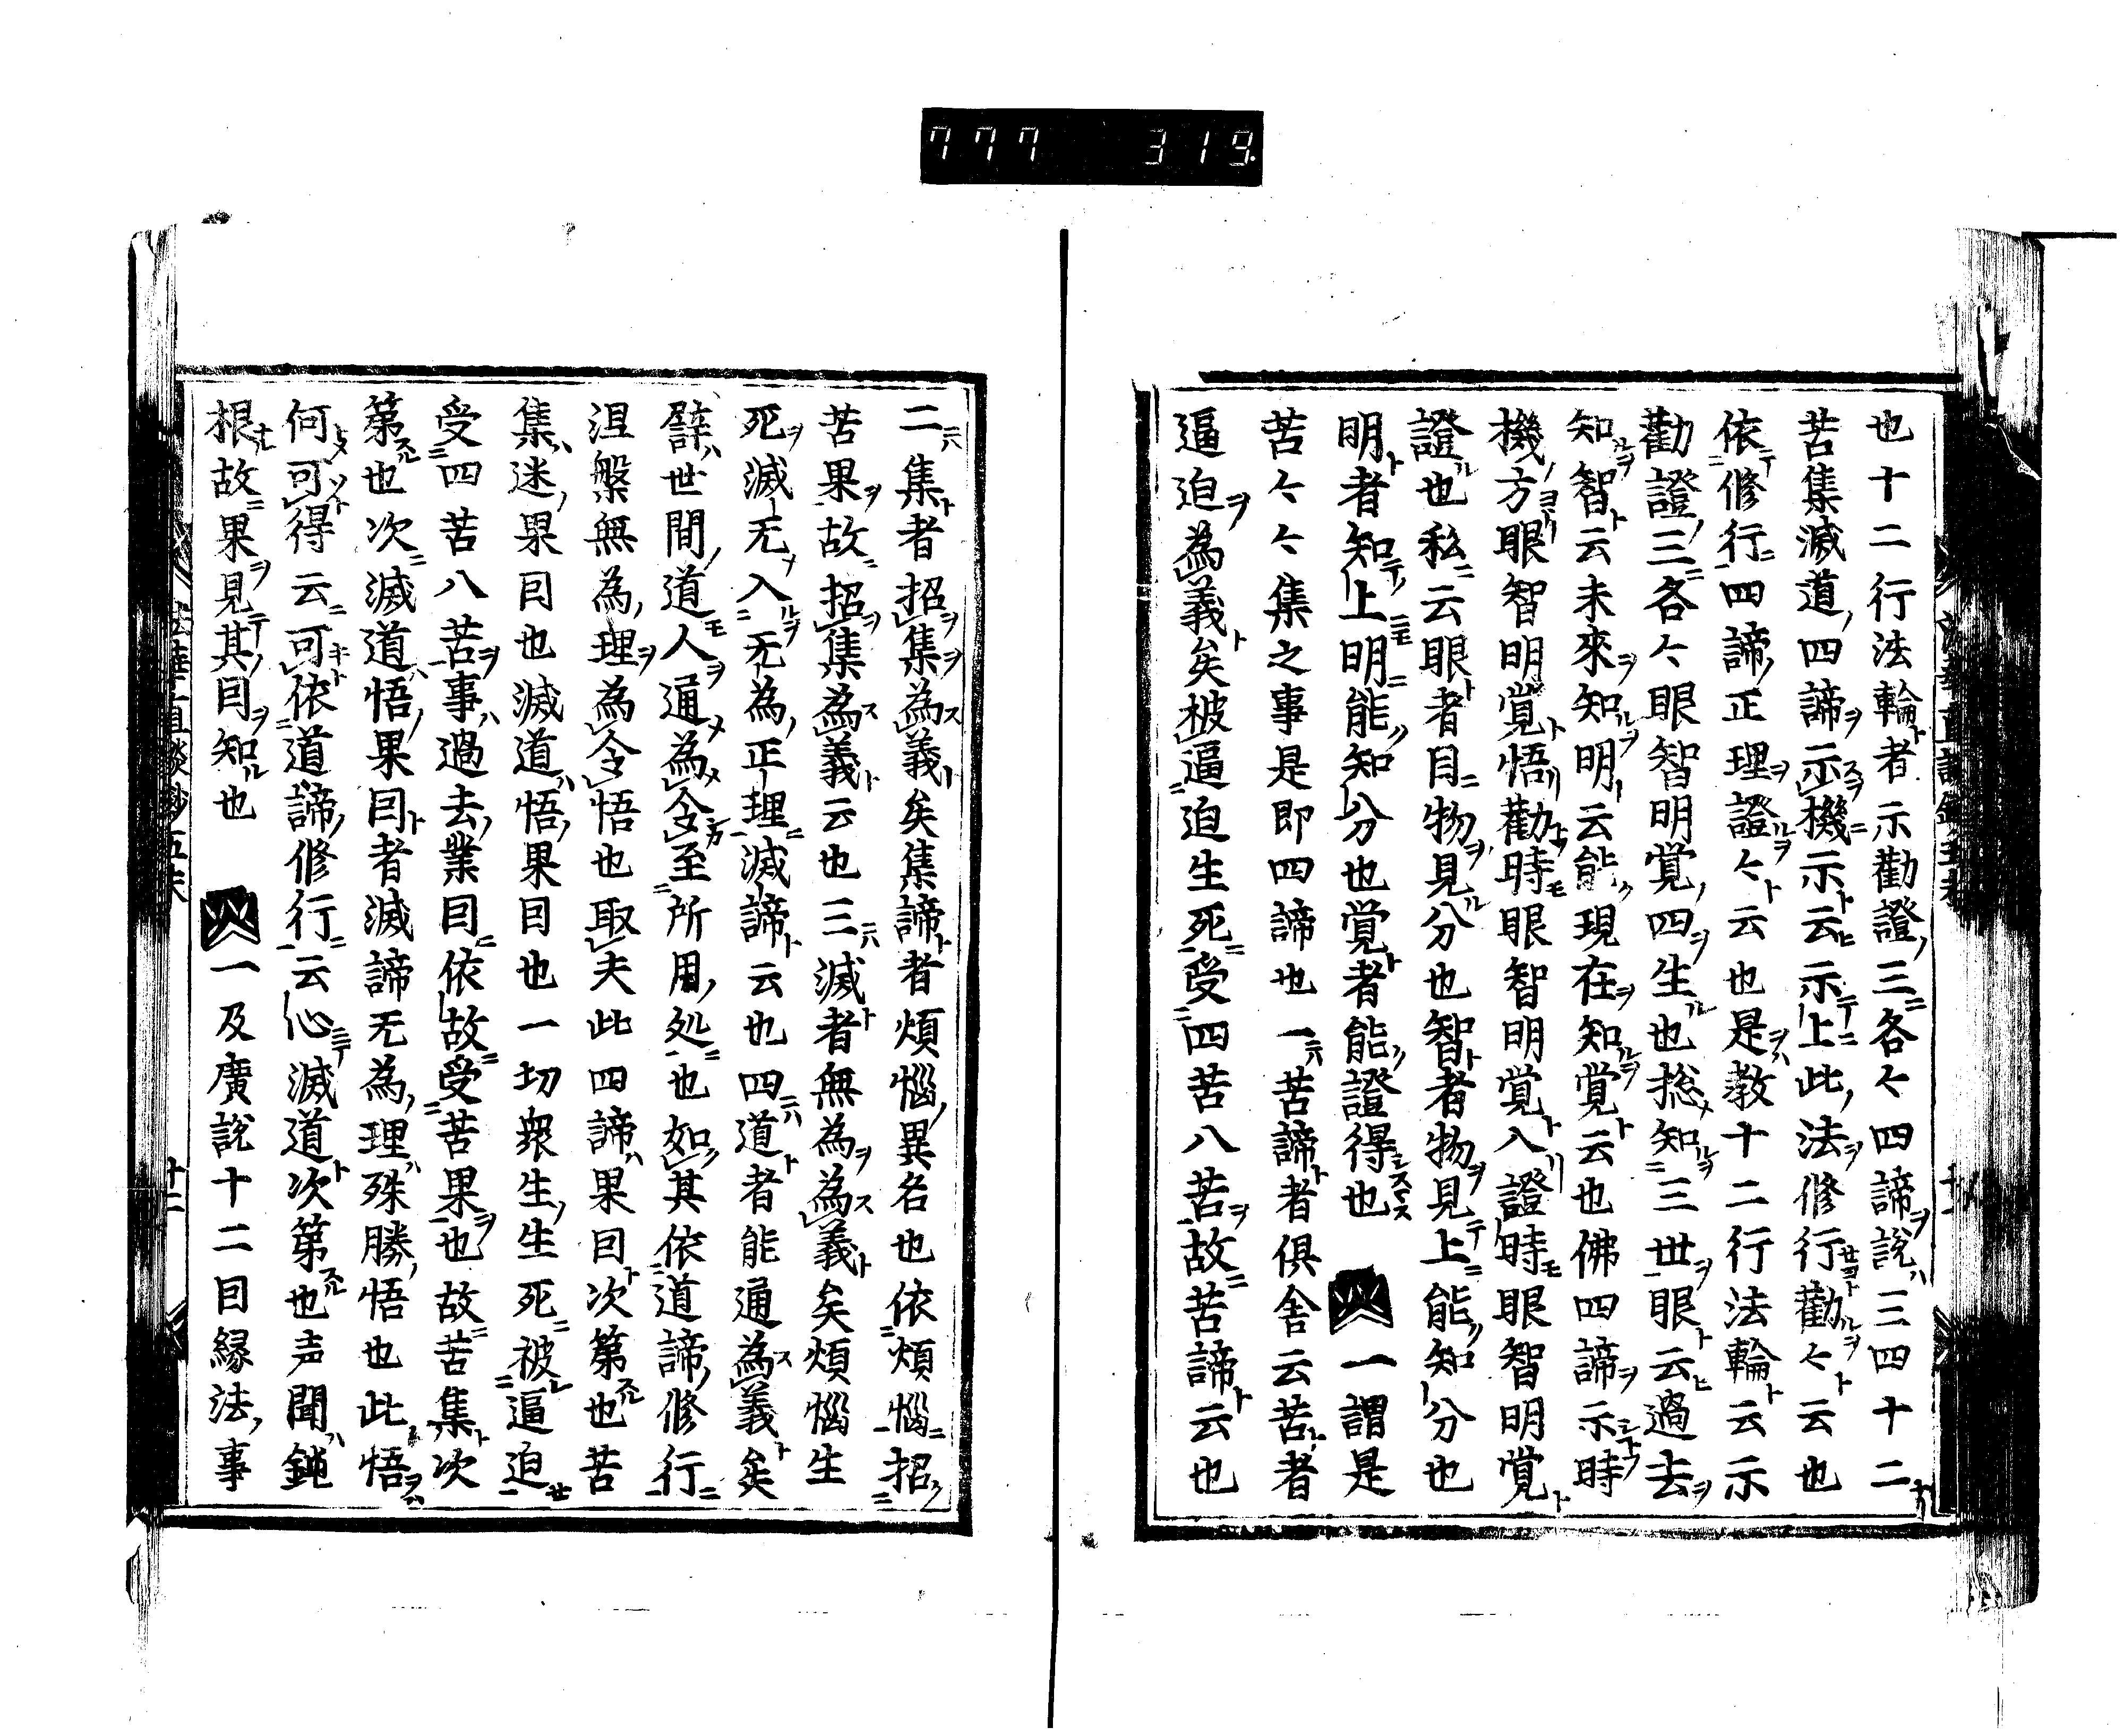 777 319
也十二行法輪者示勸證三各々四諦說三四十二
苦集滅道四諦示機示云示上此法修行勸々云也
依修行四諦正理證々云也是教十二行法輪云示
勸證三各々眼智明覚四生也捴知三世眼云過去
知智云未來知明云能現在知覚云也佛四諦示時
機方眼智明覚悟勸時眼智明覚入證時眼智明覚
證也私云眼者目物見分也智者物見上能知分也
明者知上明能知分也覚者能證得也 一謂是
苦々々集之事是即四諦也一苦諦者俱舍云苦者
逼迫為義矣被逼迫生死受四苦八苦故苦諦云也
二集者招集為義矣集諦者煩惱異名也依煩惱招
苦果故招集為義云也三滅者無為為義矣煩惱生
死滅无入无為正理滅諦云也四道者能通為義矣
譬世間道人通為令至所用処也如其依道諦修行
涅槃無為理為令悟也取夫此四諦果因次第也苦
集迷果因也滅道悟果因也一切衆生生死被逼迫
受四苦八苦事過去業因依故受苦果也故苦集次
第也次滅道悟果因者滅諦无為理殊勝悟也此悟
何可得云可依道諦修行云心滅道次第也声聞鈍
根故果見其因知也 一及廣說十二因縁法事
十二